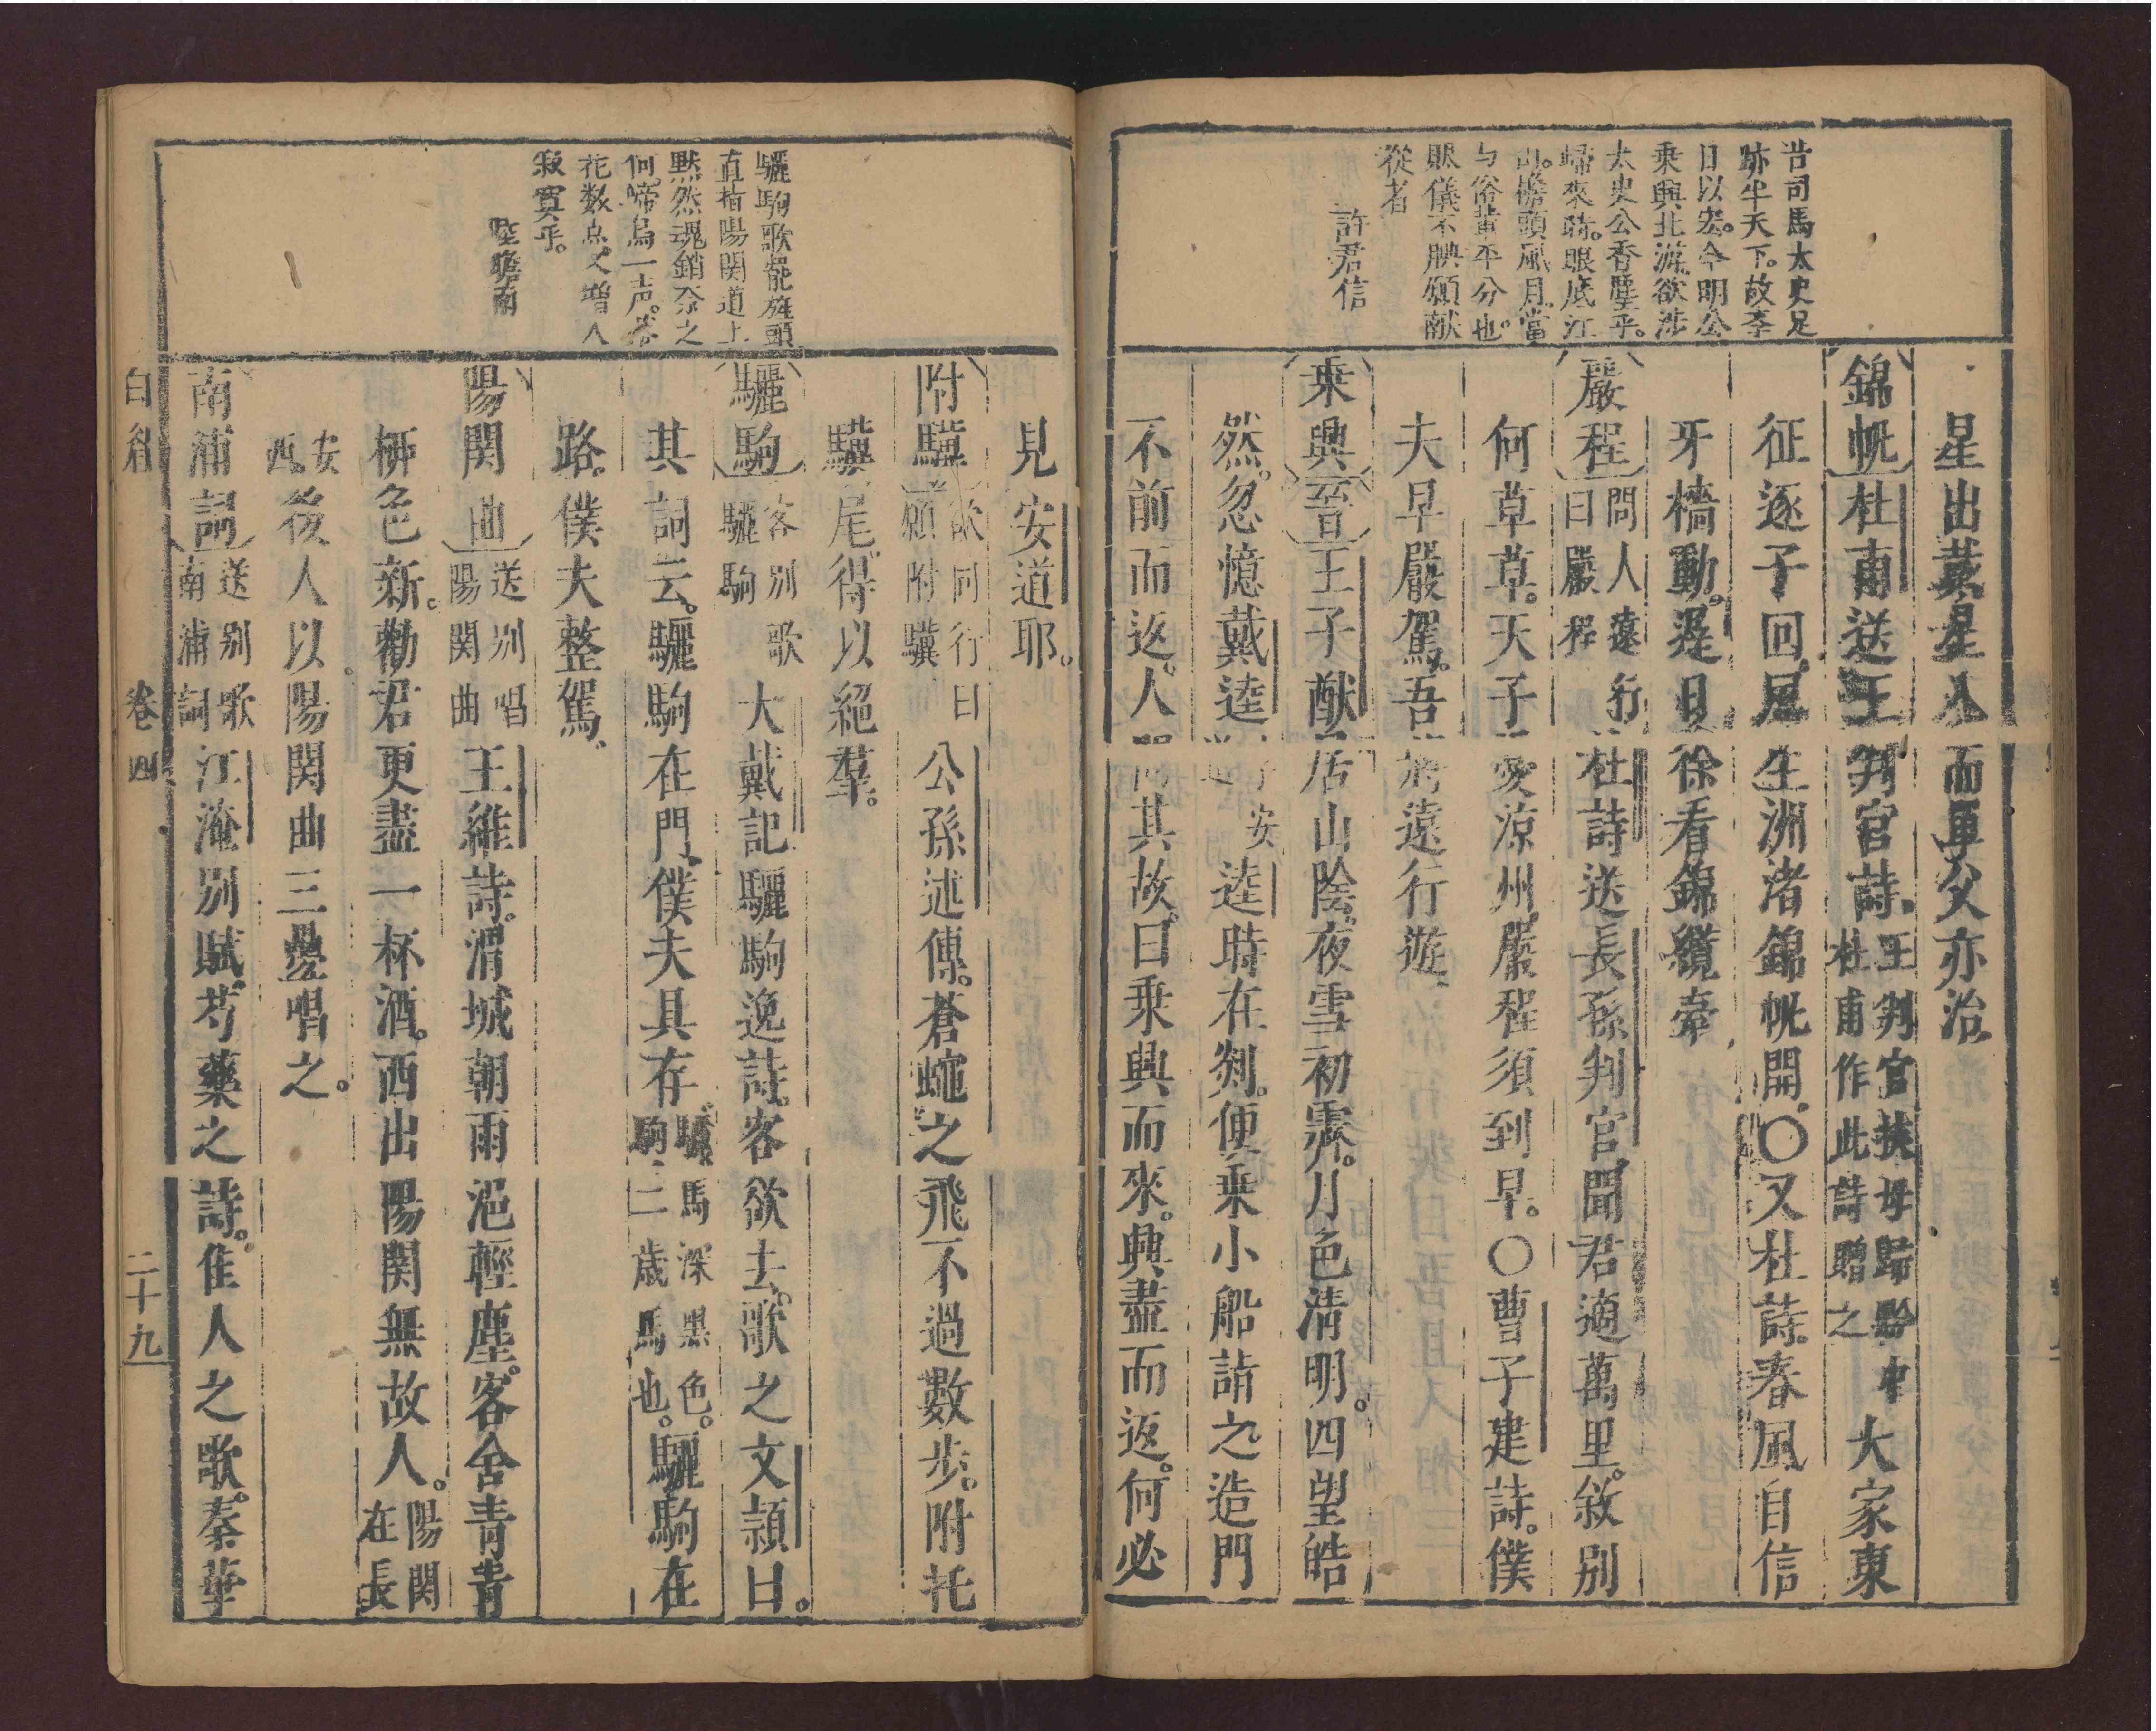 昔司馬太史足
跡半天下。故奎
目以宏。今明公
乘興北游。欲涉
太史公香塵乎。
歸來時。眼底江
山。檐頭風月。當
与俗輩平分也。
贐儀不腆。願献
從者
許君信
星出戴星入而單父亦治。
錦帆 杜甫送王判官詩。王判官扶母歸黔中杜甫作此詩贈之大家東
征逐子回。風生洲渚錦帆開。〇又杜詩。春風自信
牙檣動。遲日徐看錦纜牽
嚴程 問人遠行曰嚴程 杜詩送長孫判官。聞君適萬里。敘別
何草草。天子愛涼州。嚴程須到早。〇曹子建詩。僕
夫早嚴駕。吾將遠行遊。
乘興 晉王子猷居山陰。夜雪初霽。月色清明。四望皓
然。忽憶戴逵。子安逵時在剡。便乘小船詣之。造門
不前而返。人問其故。曰乘興而來。興盡而返。何必
驪駒歌罷。旌頭
直指陽関道上
黙然魂銷。奈之
何。啼鳥一声。
花数点。又增人
寂寞乎。
陸瞻甫
見安道耶。
附驥 欲同行曰願附驥 公孫述傳。蒼蠅之飛。不過數步。附托
驥尾。得以絕羣。
驪駒 客別歌驪駒 大戴記驪駒逸詩。客欲去。歌之。文穎曰。
其詞云。驪駒在門。僕夫具存。驪。馬深黒色。駒。二歲馬也。驪駒在
路。僕夫整駕。
陽関曲 送别唱陽関曲 王維詩。渭城朝雨浥輕塵。客舍青青
栁色新。勸君更盡一杯酒。西出陽関無故人。陽関在長
安西。後人以陽関曲三疊唱之。
南浦詞 送别歌南浦詞 江淹别賦。芍藥之詩。佳人之歌。秦華
卷四
二十九